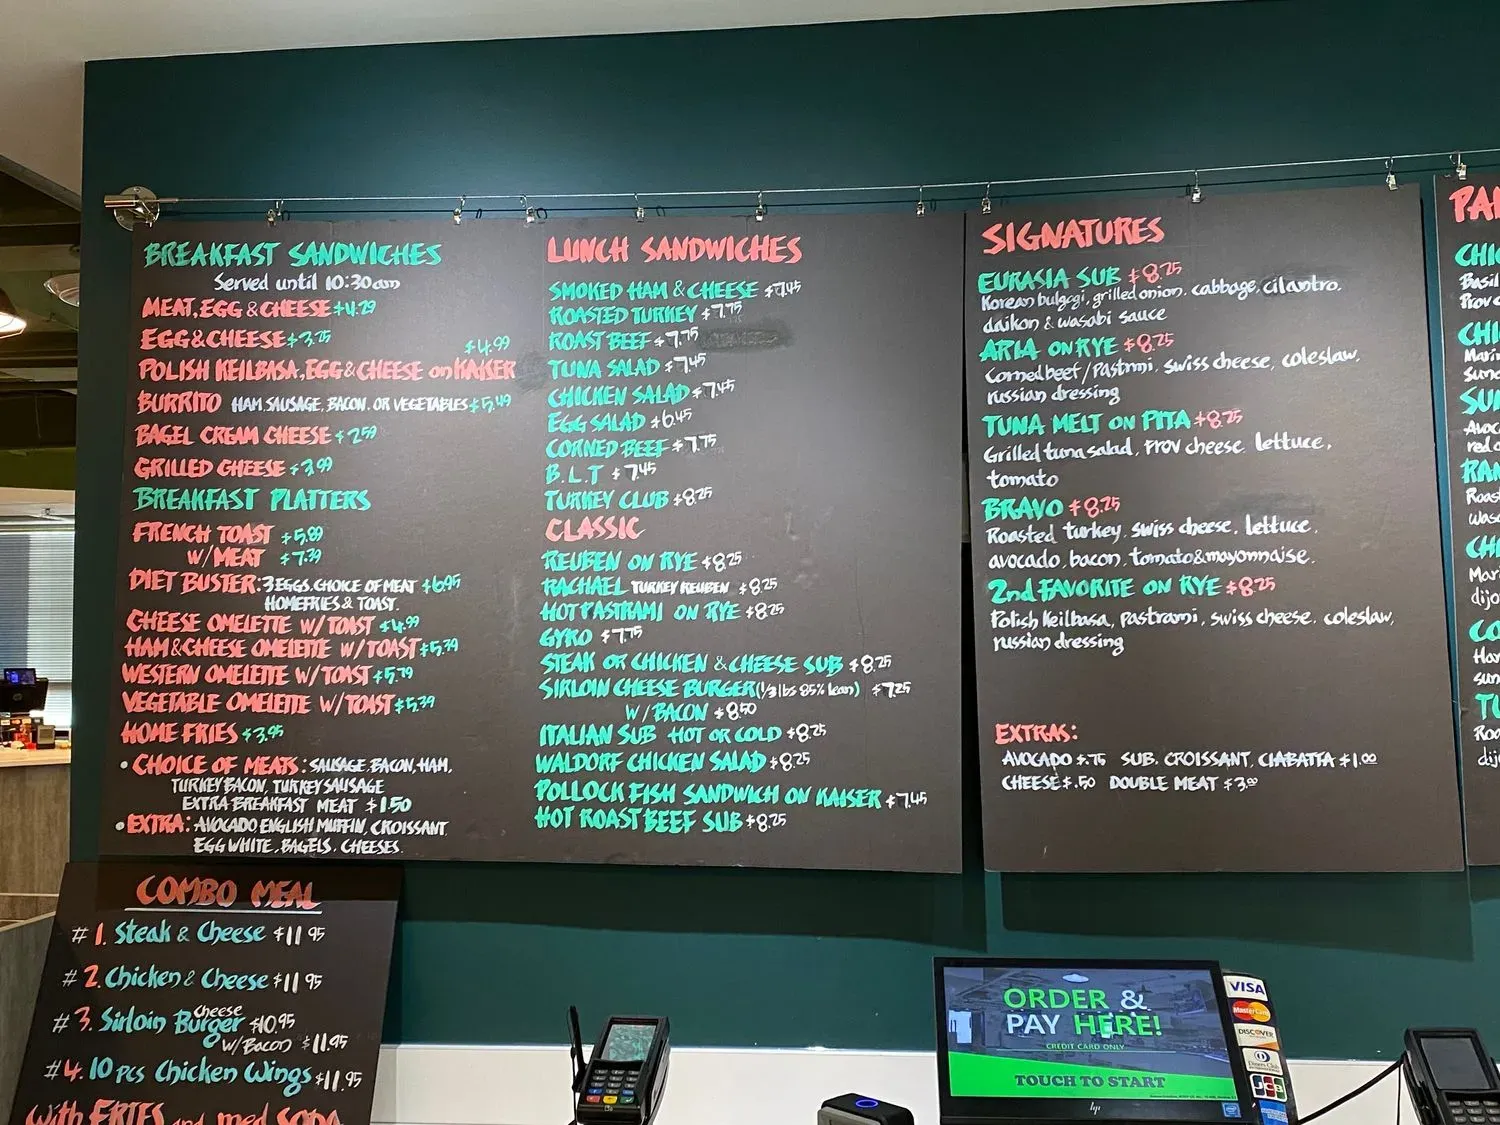 BREAKFAST SANDWICHES
Served until 10:30am
MEAT, EGG & CHEESE $4.29
EGG & CHEESE $3.75
$4.99
POLISH KEILBASA, EGG & CHEESE on KAISER
BURRITO HAM, SAUSAGE, BACON, OR VEGETABLES $5.49
BAGEL CREAM CHEESE $2.59
GRILLED CHEESE $3.99
BREAKFAST PLATTERS
FRENCH TOAST $5.89
W/ MEAT $7.39
DIET BUSTER: 3 EGGS, CHOICE OF MEAT $6.95
HOMEFRIES & TOAST.
CHEESE OMELETTE W/ TOAST $4.99
HAM & CHEESE OMELETTE W/ TOAST $5.79
WESTERN OMELETTE W/ TOAST $5.79
VEGETABLE OMELETTE W/ TOAST $5.39
HOME FRIES $3.95
• CHOICE OF MEATS: SAUSAGE, BACON, HAM,
TURKEY BACON, TURKEY SAUSAGE
EXTRA BREAKFAST MEAT $1.50
• EXTRA: AVOCADO ENGLISH MUFFIN, CROISSANT
EGG WHITE, BAGELS, CHEESES.
LUNCH SANDWICHES
SMOKED HAM & CHEESE $7.45
ROASTED TURKEY $7.75
ROAST BEEF $7.75
TUNA SALAD $7.45
CHICKEN SALAD $7.45
EGG SALAD $6.45
CORNED BEEF $7.75
B.L.T $7.45
TURKEY CLUB $8.25
CLASSIC
REUBEN ON RYE $8.25
RACHAEL TURKEY REUBEN $8.25
HOT PASTRAMI ON RYE $8.25
GYRO $7.75
STEAK OR CHICKEN & CHEESE SUB $8.25
SIRLOIN CHEESE BURGER (1/3 lbs 85% lean) $7.25
W/ BACON $8.50
ITALIAN SUB HOT OR COLD $8.25
WALDORF CHICKEN SALAD $8.25
POLLOCK FISH SANDWICH ON KAISER $7.45
HOT ROAST BEEF SUB $8.25
SIGNATURES
EURASIA SUB $8.25
Korean bulgogi, grilled onion, cabbage, cilantro,
daikon & wasabi sauce
ARIA ON RYE $8.25
Corned beef / Pastrmi, swiss cheese, coleslaw,
russian dressing
TUNA MELT ON PITA $8.25
Grilled tuna salad, Prov cheese, lettuce,
tomato
BRAVO $8.25
Roasted turkey, swiss cheese, lettuce,
avocado, bacon, tomato & mayonnaise.
2nd FAVORITE ON RYE $8.25
Polish Keilbasa, pastrami, swiss cheese, coleslaw,
russian dressing
EXTRAS:
AVOCADO $.75 SUB. CROISSANT, CIABATTA $1.00
CHEESE $.50 DOUBLE MEAT $3.00
COMBO MEAL
# 1. Steak & Cheese $11.95
# 2. Chicken & Cheese $11.95
# 3. Sirloin Cheese Burger $10.95
w/ Bacon $11.95
# 4. 10 pcs Chicken Wings $11.95
With FRIES and med SODA
ORDER &
PAY HERE!
CREDIT CARD ONLY
TOUCH TO START
hp
VISA
MasterCard
DISCOVER
Diners Club
JCB